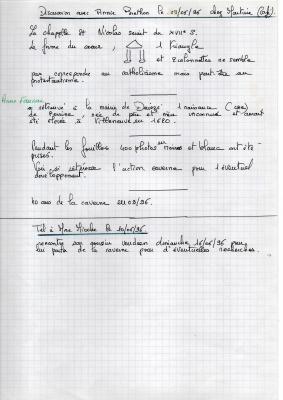 Discussion avec Annie le 09/05/96 chez Martine (Cafe).
La chapelle St Nicolas serait du XVIIe S.
La forme du coeur, 1 triangle
et 2 colonnettes ne semble
pas correspondre au catholicisme mais peut au
protestantisme.
a retrouvé à la mairie de 1 naissance
de, née de père et mère inconnue et aurait
été élevée à Villeneuve en 1620.
Pendant les fouilles 400 photos en noires et blanc ont été
prises.
Voir si l'action caverne pour 1 éventuel
développement.
40 ans de la caverne en 09/96.
Tél à Mme Nicolas le 10/05/96
rencontre son cousin vendredi dimanche 15/05/96 pour
lui parler de la caverne pour d'éventuelles recherches.